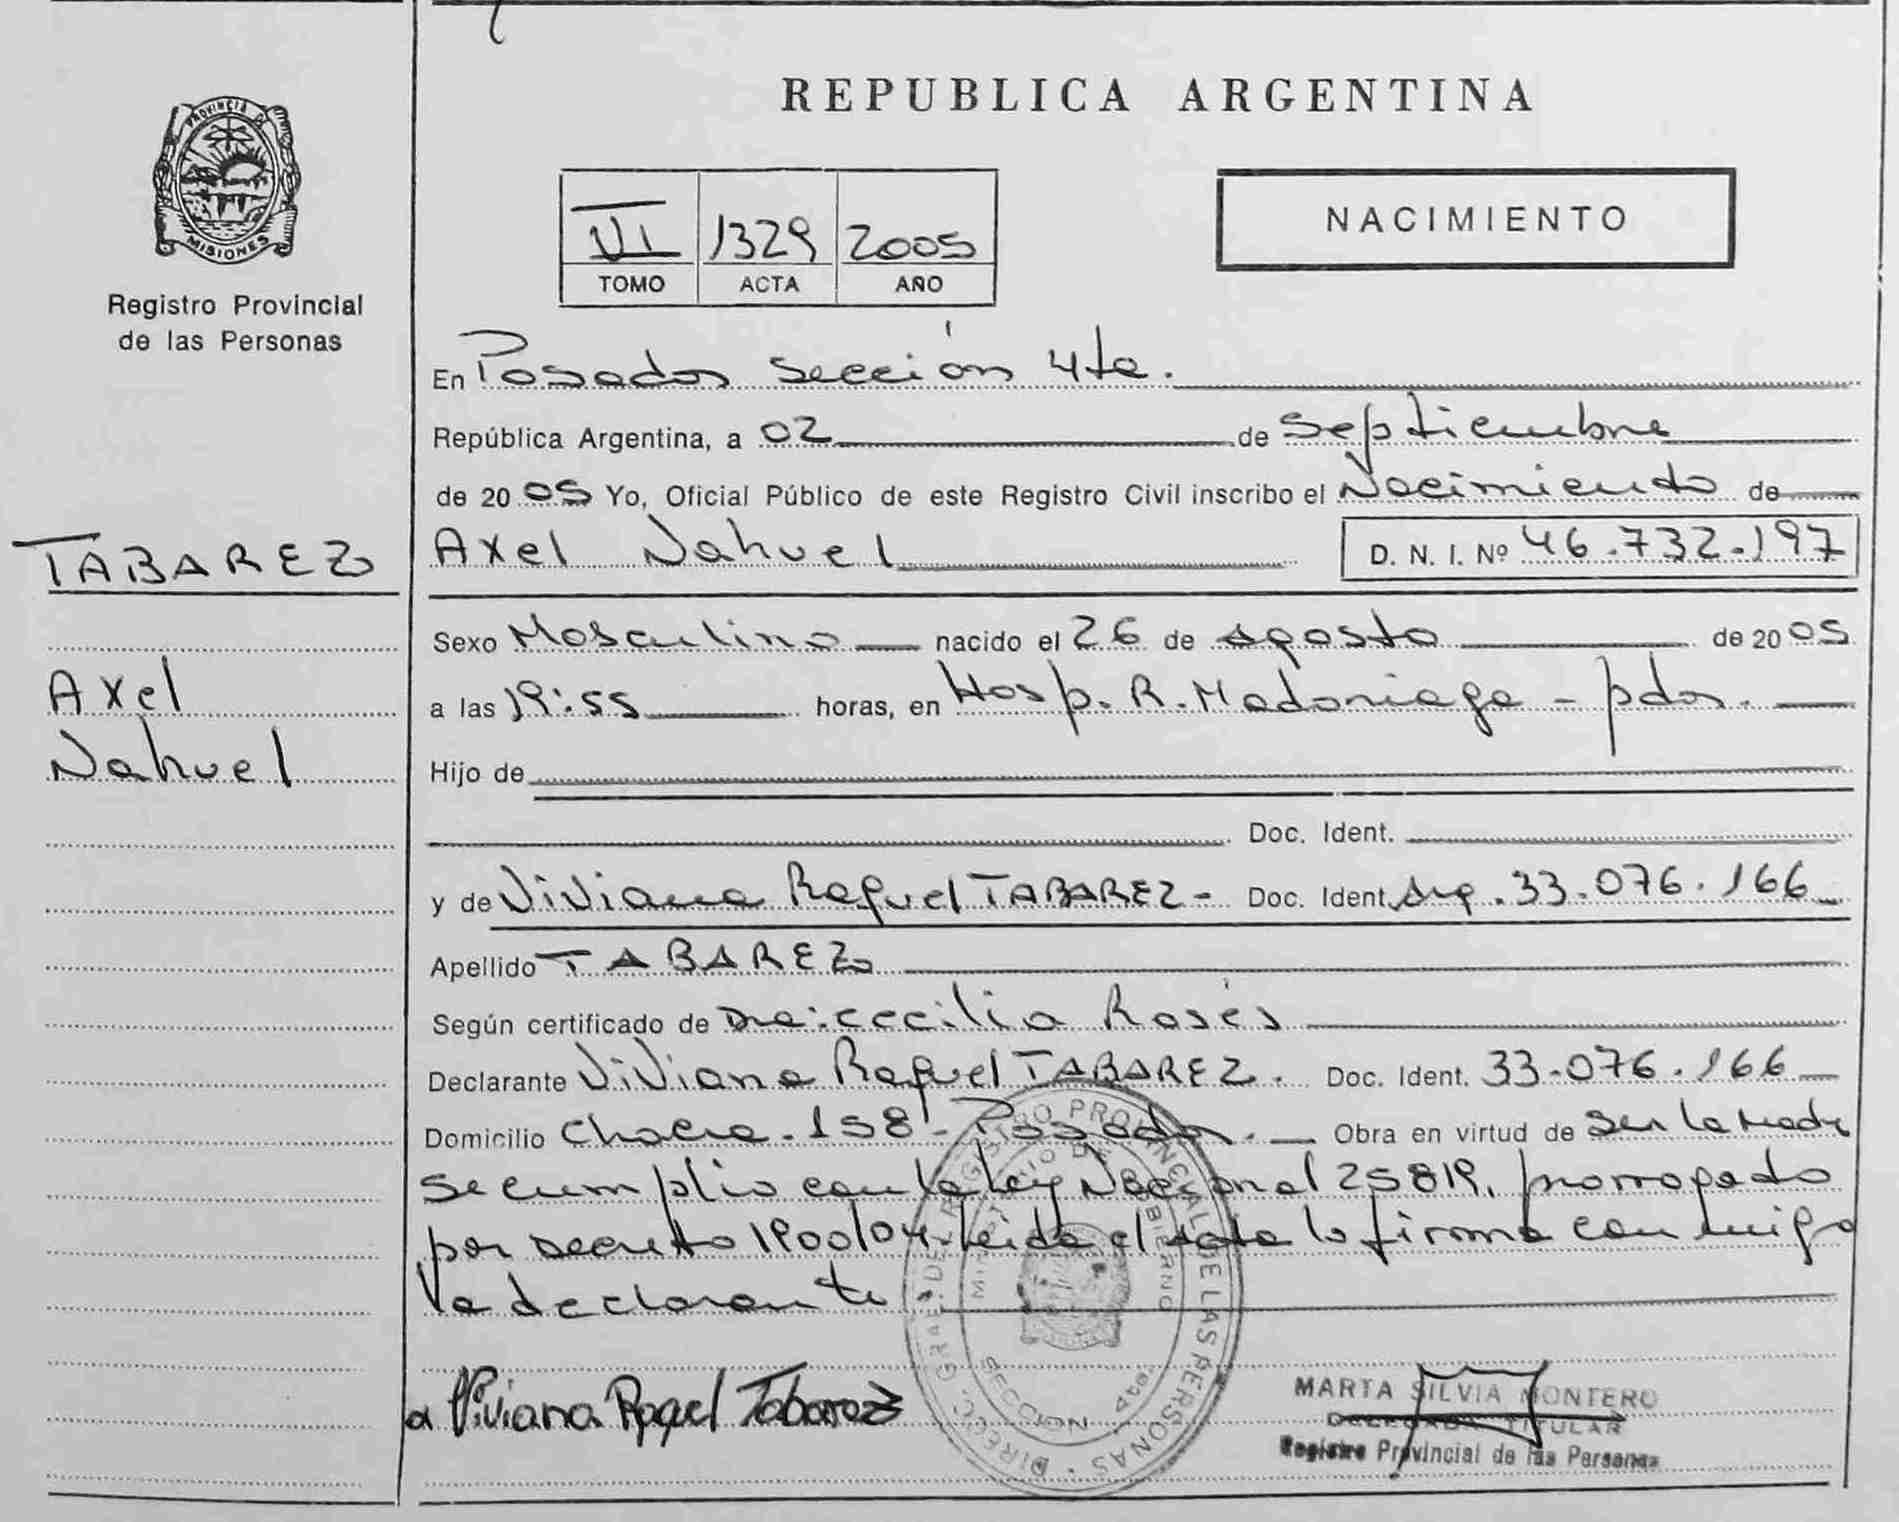 REPUBLICA ARGENTINA
PROVINCIA DE
MISIONES
Registro Provincial
de las Personas
VI 1329 2005
TOMO ACTA AÑO
NACIMIENTO
En Posadas sección 4ta.
República Argentina, a 02 de septiembre
de 2005 Yo, Oficial Público de este Registro Civil inscribo el Nacimiento de
TABAREZ
Axel Nahuel D. N. I. Nº 46.732.197
Sexo Masculino nacido el 26 de agosto de 2005
Axel
a las 19:55 horas, en Hosp. R. Madariaga - pdas.
Nahuel
Hijo de
Doc. Ident.
y de Viviana Raquel TABAREZ - Doc. Ident. Arg. 33.076.166
Apellido TABAREZ
Según certificado de Dra: Cecilia Rosés
Declarante Viviana Raquel TABAREZ. Doc. Ident. 33.076.166
Domicilio Chacra - 158 - Posadas. Obra en virtud de ser la madre
se cumplio con la Ley Nacional 25819, prorrogado
por decreto 1900/04. Leida el acta la firma conmigo
la declarante.
DIREC. GRAL. DEL REGISTRO PROVINCIAL DE LAS PERSONAS
MINISTERIO DE GOBIERNO
SECCION 4ta
a Viviana Raqel Tabarez
MARTA SILVIA MONTERO
DELEGADA TITULAR
Registro Provincial de las Personas